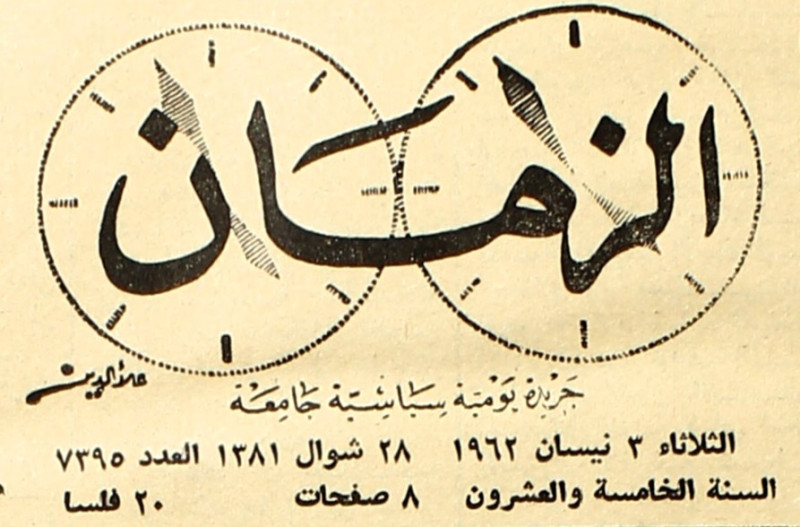 الزمان
علاء الدين
جَرِيدَة يَوْمِيَّة سِيَاسِيَّة جَامِعَة
الثلاثاء ٣ نيسان ١٩٦٢ ٢٨ شوال ١٣٨١ العدد ٧٣٩٥
السنة الخامسة والعشرون ٨ صفحات ٢٠ فلسا